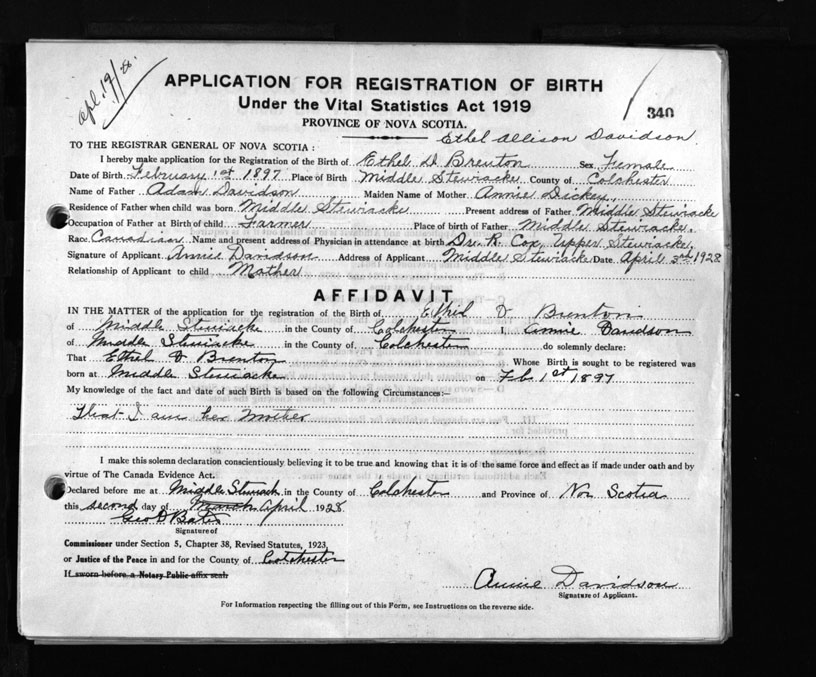 apl. 19/28.
APPLICATION FOR REGISTRATION OF BIRTH
Under the Vital Statistics Act 1919
340
PROVINCE OF NOVA SCOTIA.
Ethel Allison Davidson
TO THE REGISTRAR GENERAL OF NOVA SCOTIA:
I hereby make application for the Registration of the Birth of Ethel D Brenton Sex Female
Date of Birth February 1st 1897 Place of Birth Middle Stewiacke County of Colchester
Name of Father Adam Davidson Maiden Name of Mother Annie Dickey
Residence of Father when child was born Middle Stewiacke Present address of Father Middle Stewiacke
Occupation of Father at Birth of child Farmer Place of birth of Father Middle Stewiacke.
Race Canadian Name and present address of Physician in attendance at birth Dr. R. Cox, Upper Stewiacke.
Signature of Applicant Annie Davidson Address of Applicant Middle Stewiacke Date April 3rd 1928
Relationship of Applicant to child Mother
AFFIDAVIT
IN THE MATTER of the application for the registration of the Birth of Ethel D Brenton
of Middle Stewiacke in the County of Colchester I, Annie Davidson
of Middle Stewiacke in the County of Colchester do solemnly declare:
That Ethel D Brenton Whose Birth is sought to be registered was
born at Middle Stewiacke on Feb. 1st 1897
My knowledge of the fact and date of such Birth is based on the following Circumstances:—
That I am her Mother
I make this solemn declaration conscientiously believing it to be true and knowing that it is of the same force and effect as if made under oath and by
virtue of The Canada Evidence Act.
Declared before me at Middle Stewiack in the County of Colchester and Province of Nov Scotia
this second day of March April 1928
Geo D Bates
Signature of
Commissioner under Section 5, Chapter 38, Revised Statutes, 1923,
or Justice of the Peace in and for the County of Colchester
If sworn before a Notary Public affix seal
Annie Davidson
Signature of Applicant.
For Information respecting the filling out of this Form, see Instructions on the reverse side.